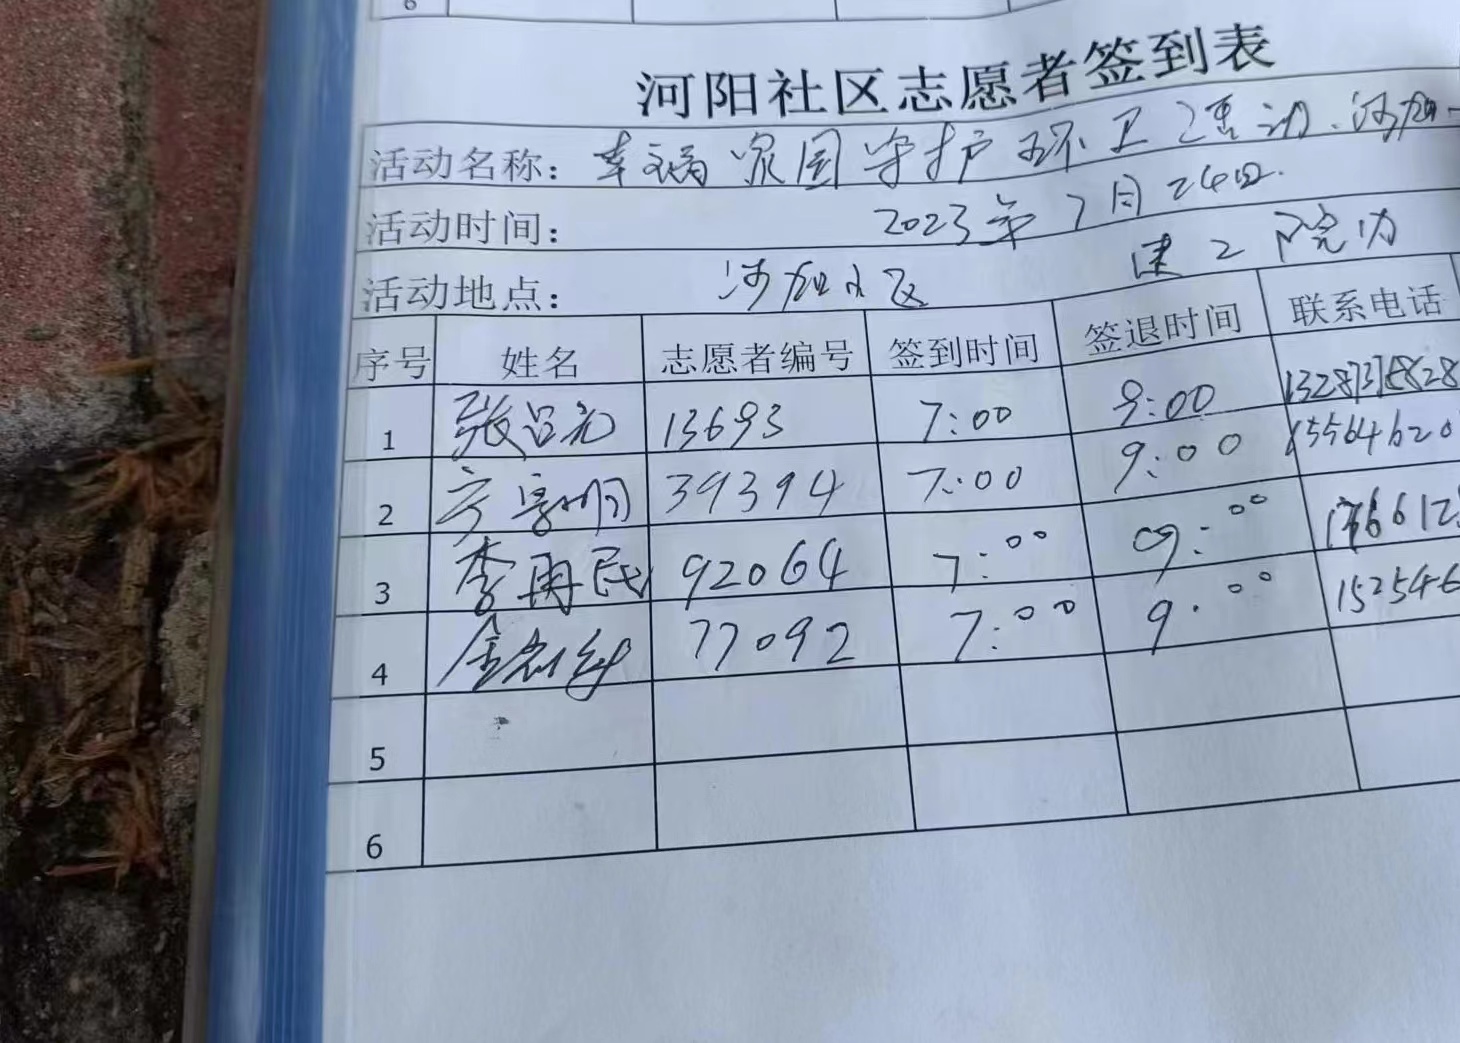 6
河阳社区志愿者签到表
活动名称： 幸福家园守护环卫活动.河阳
活动时间： 2023年7月24日.
活动地点： 河阳小区 建工院内
序号 姓名 志愿者编号 签到时间 签退时间 联系电话
1 张吕元 13693 7:00 9:00
2 39394 7:00 9:00 15564620
3 李再民 92064 7:00 09:00 176612
4 77092 7:00 9:00 152546
5
6